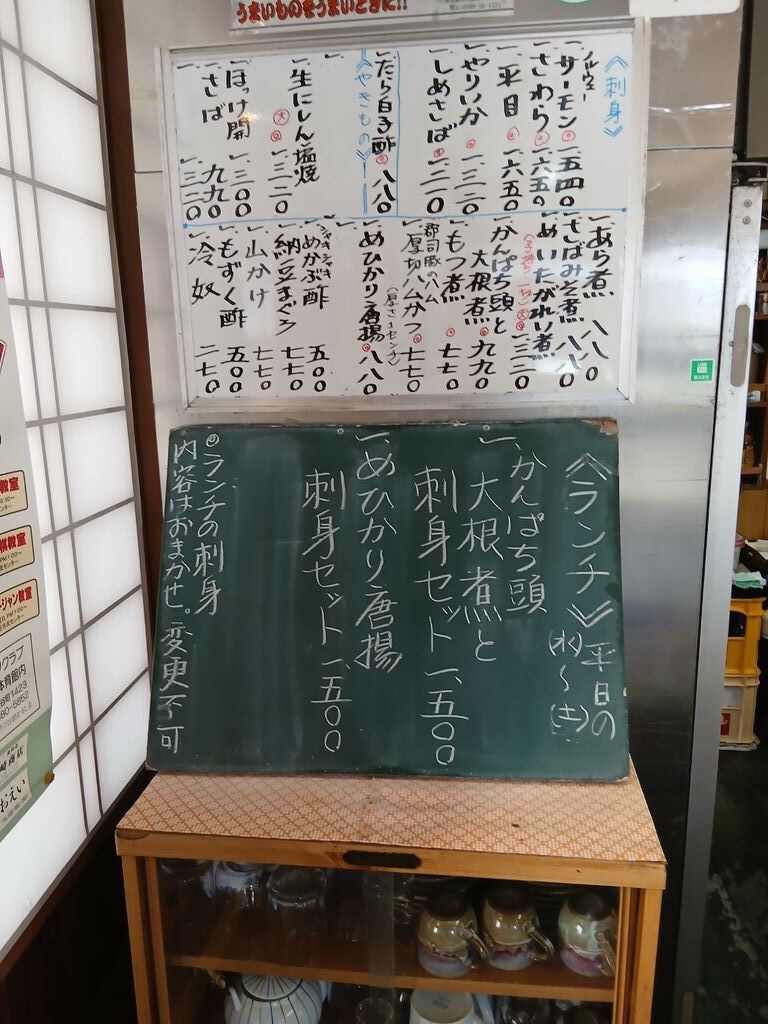 うまいものをうまいときに!!
《刺身》
ノルウェー
サーモン 一、五四〇
一、さわら 一、六五〇
一、平目 一、六五〇
一、やりいか 一、三二〇
一、しめさば 一、二一〇
一、たら白子酢 八八〇
《やきもの》
一、生にしん塩焼 一、三二〇
大
一、ほっけ開 一、三〇〇
一、さば 九九〇
一、三二〇
一、あら煮 八八〇
一、さばみそ煮 八八〇
一、めいたがれい煮 一、三二〇
一、かんぱち頭と
大根煮 九九〇
一、もつ煮 七七〇
郡司豚のハム
一、厚切ハムかつ 七七〇
(厚さ1センチ)
一、めひかり唐揚 八八〇
シャキシャキ
めかぶ酢 五〇〇
一、納豆まぐろ 七七〇
一、山かけ 七七〇
一、もずく酢 五〇〇
一、冷奴 二七〇
《ランチ》平日の
(水)～(土)
一、かんぱち頭
大根煮と
刺身セット 一、五〇〇
一、めひかり唐揚
刺身セット 一、五〇〇
◎ランチの刺身
内容はおまかせ。変更不可
教室
棋教室
ージャン教室
クラブ
体育館内
おえい